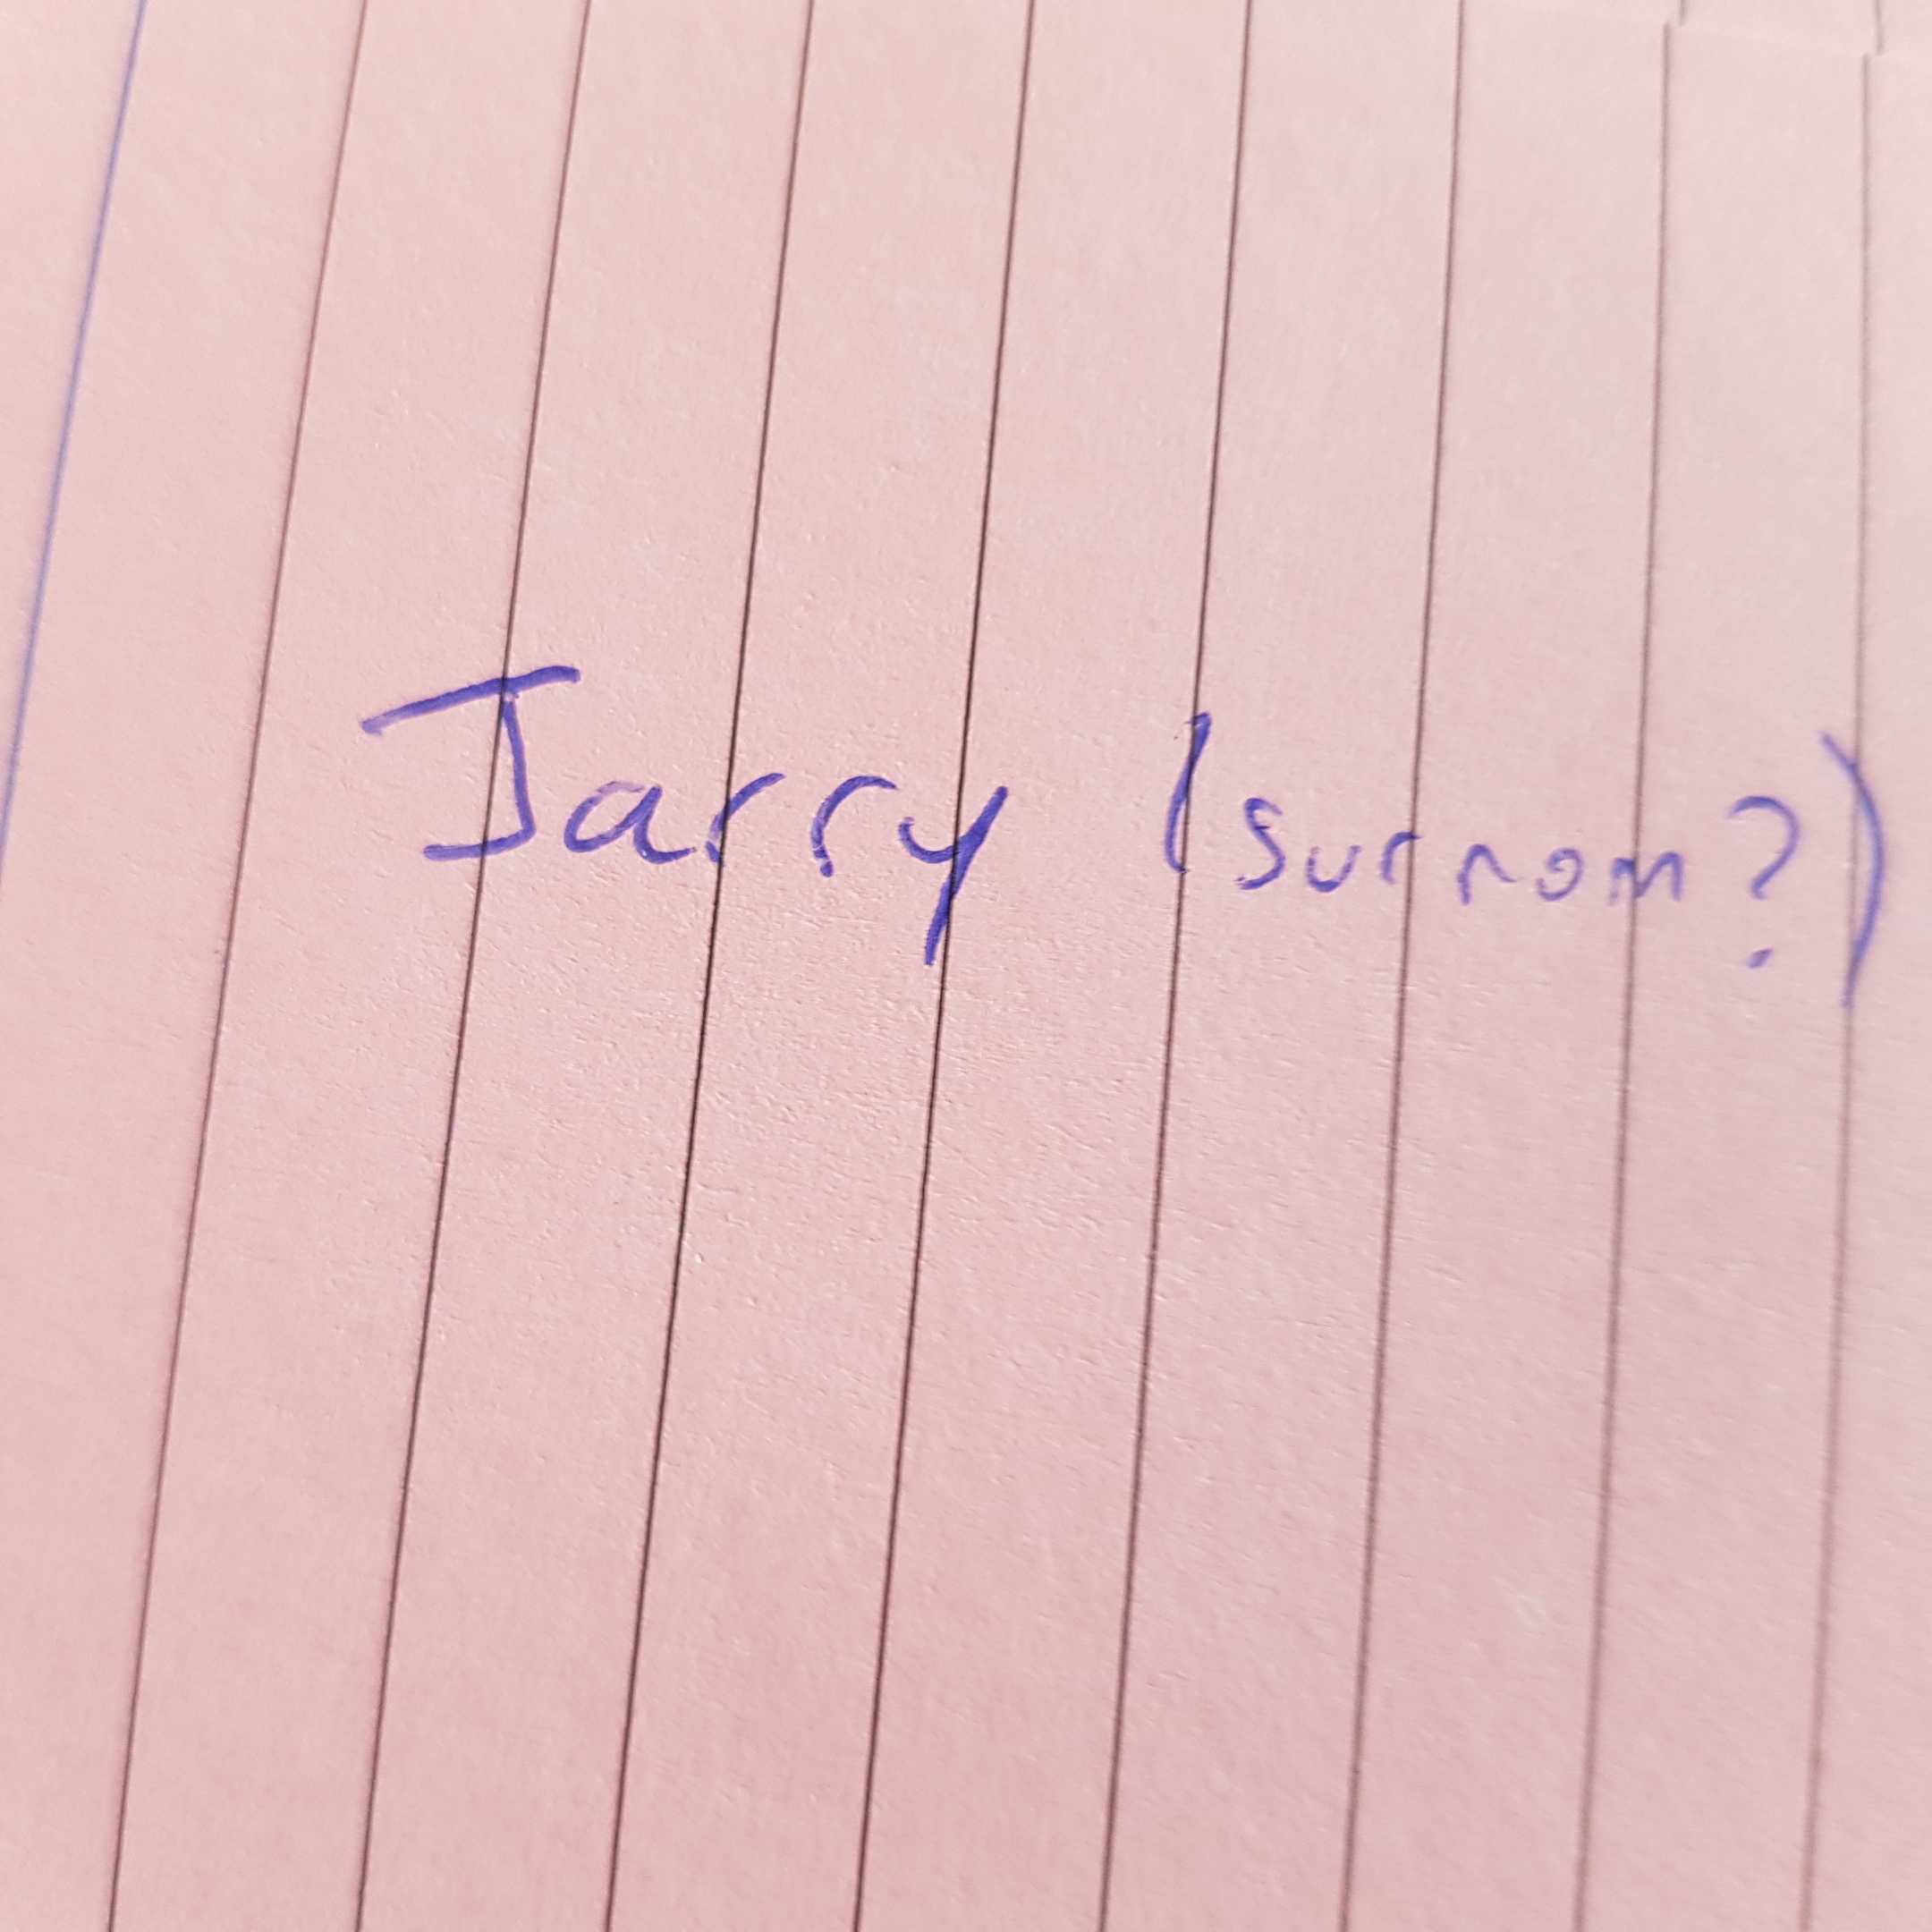 Jarry (surnom?)